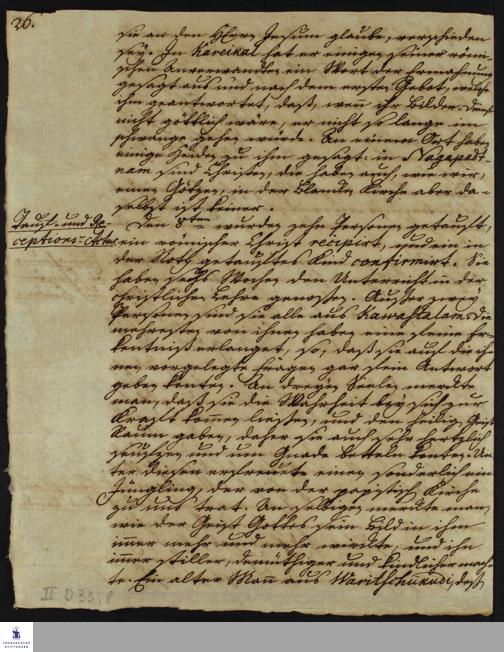 26.
sie an den HErrn Jesum glaube, verschieden
sey. In Kareikal hat er einigen seiner römi-
schen Anverwandten ein Wort der Ermahnung
gesagt aus und nach dem ersten Gebot, welche
ihm geantwortet, daß, wenn ihr Bilder-Dienst
nicht göttlich wäre, er nicht so lange im
schwange gehen würde. An einem Ort haben
einige Heiden zu ihm gesagt: in Nagapatt-
nam sind Christen, die haben auch, wie wir,
einen Götzen, in der Kirche aber da-
selbst ist keiner.
Tauf- und Re-
ceptions-Actus
Den 8ten wurden zehn Personen getauft,
ein römischer Christ recipirt, und ein in
der Noth getauftes Kind confirmirt. Sie
haben sechs Wochen den Unterricht in der
christlichen Lehre genossen. Ausser zwey
Personen sind sie alle aus Kawastalam. Die
mehresten von ihnen haben eine feine Er-
kentniß erlanget, so, daß sie auf die ih-
nen vorgelegte Fragen gar fein Antwort
geben konten. An dreyen Seelen merckte
man, daß sie die Wahrheit bey sich zur
Krafft kommen liessen, und dem heilig. Geist
Raum gaben, daher sie auch sehr hertzlich
seufzen und um Gnade betteln konten. Un-
ter diesen erfreuete einen sonderlich ein
Jüngling, der von der papistisch. Kirche
zu uns trat. An selbigen merckte man,
wie der Geist Gottes sein Bild in ihm
immer mehr und mehr wirckte, und ihn
immer stiller, demüthiger und kindlicher mach-
te. Ein alter Mann aus Waritschukudi, dess
II D 33: 8
FRANCKESCHE
STIFTUNGEN